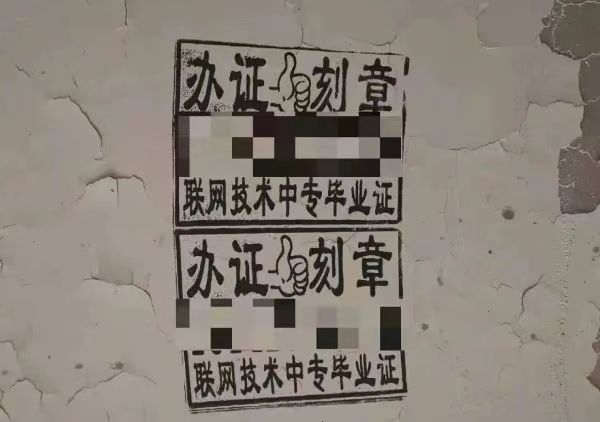 办证 刻章
联网技术中专毕业证
办证 刻章
联网技术中专毕业证